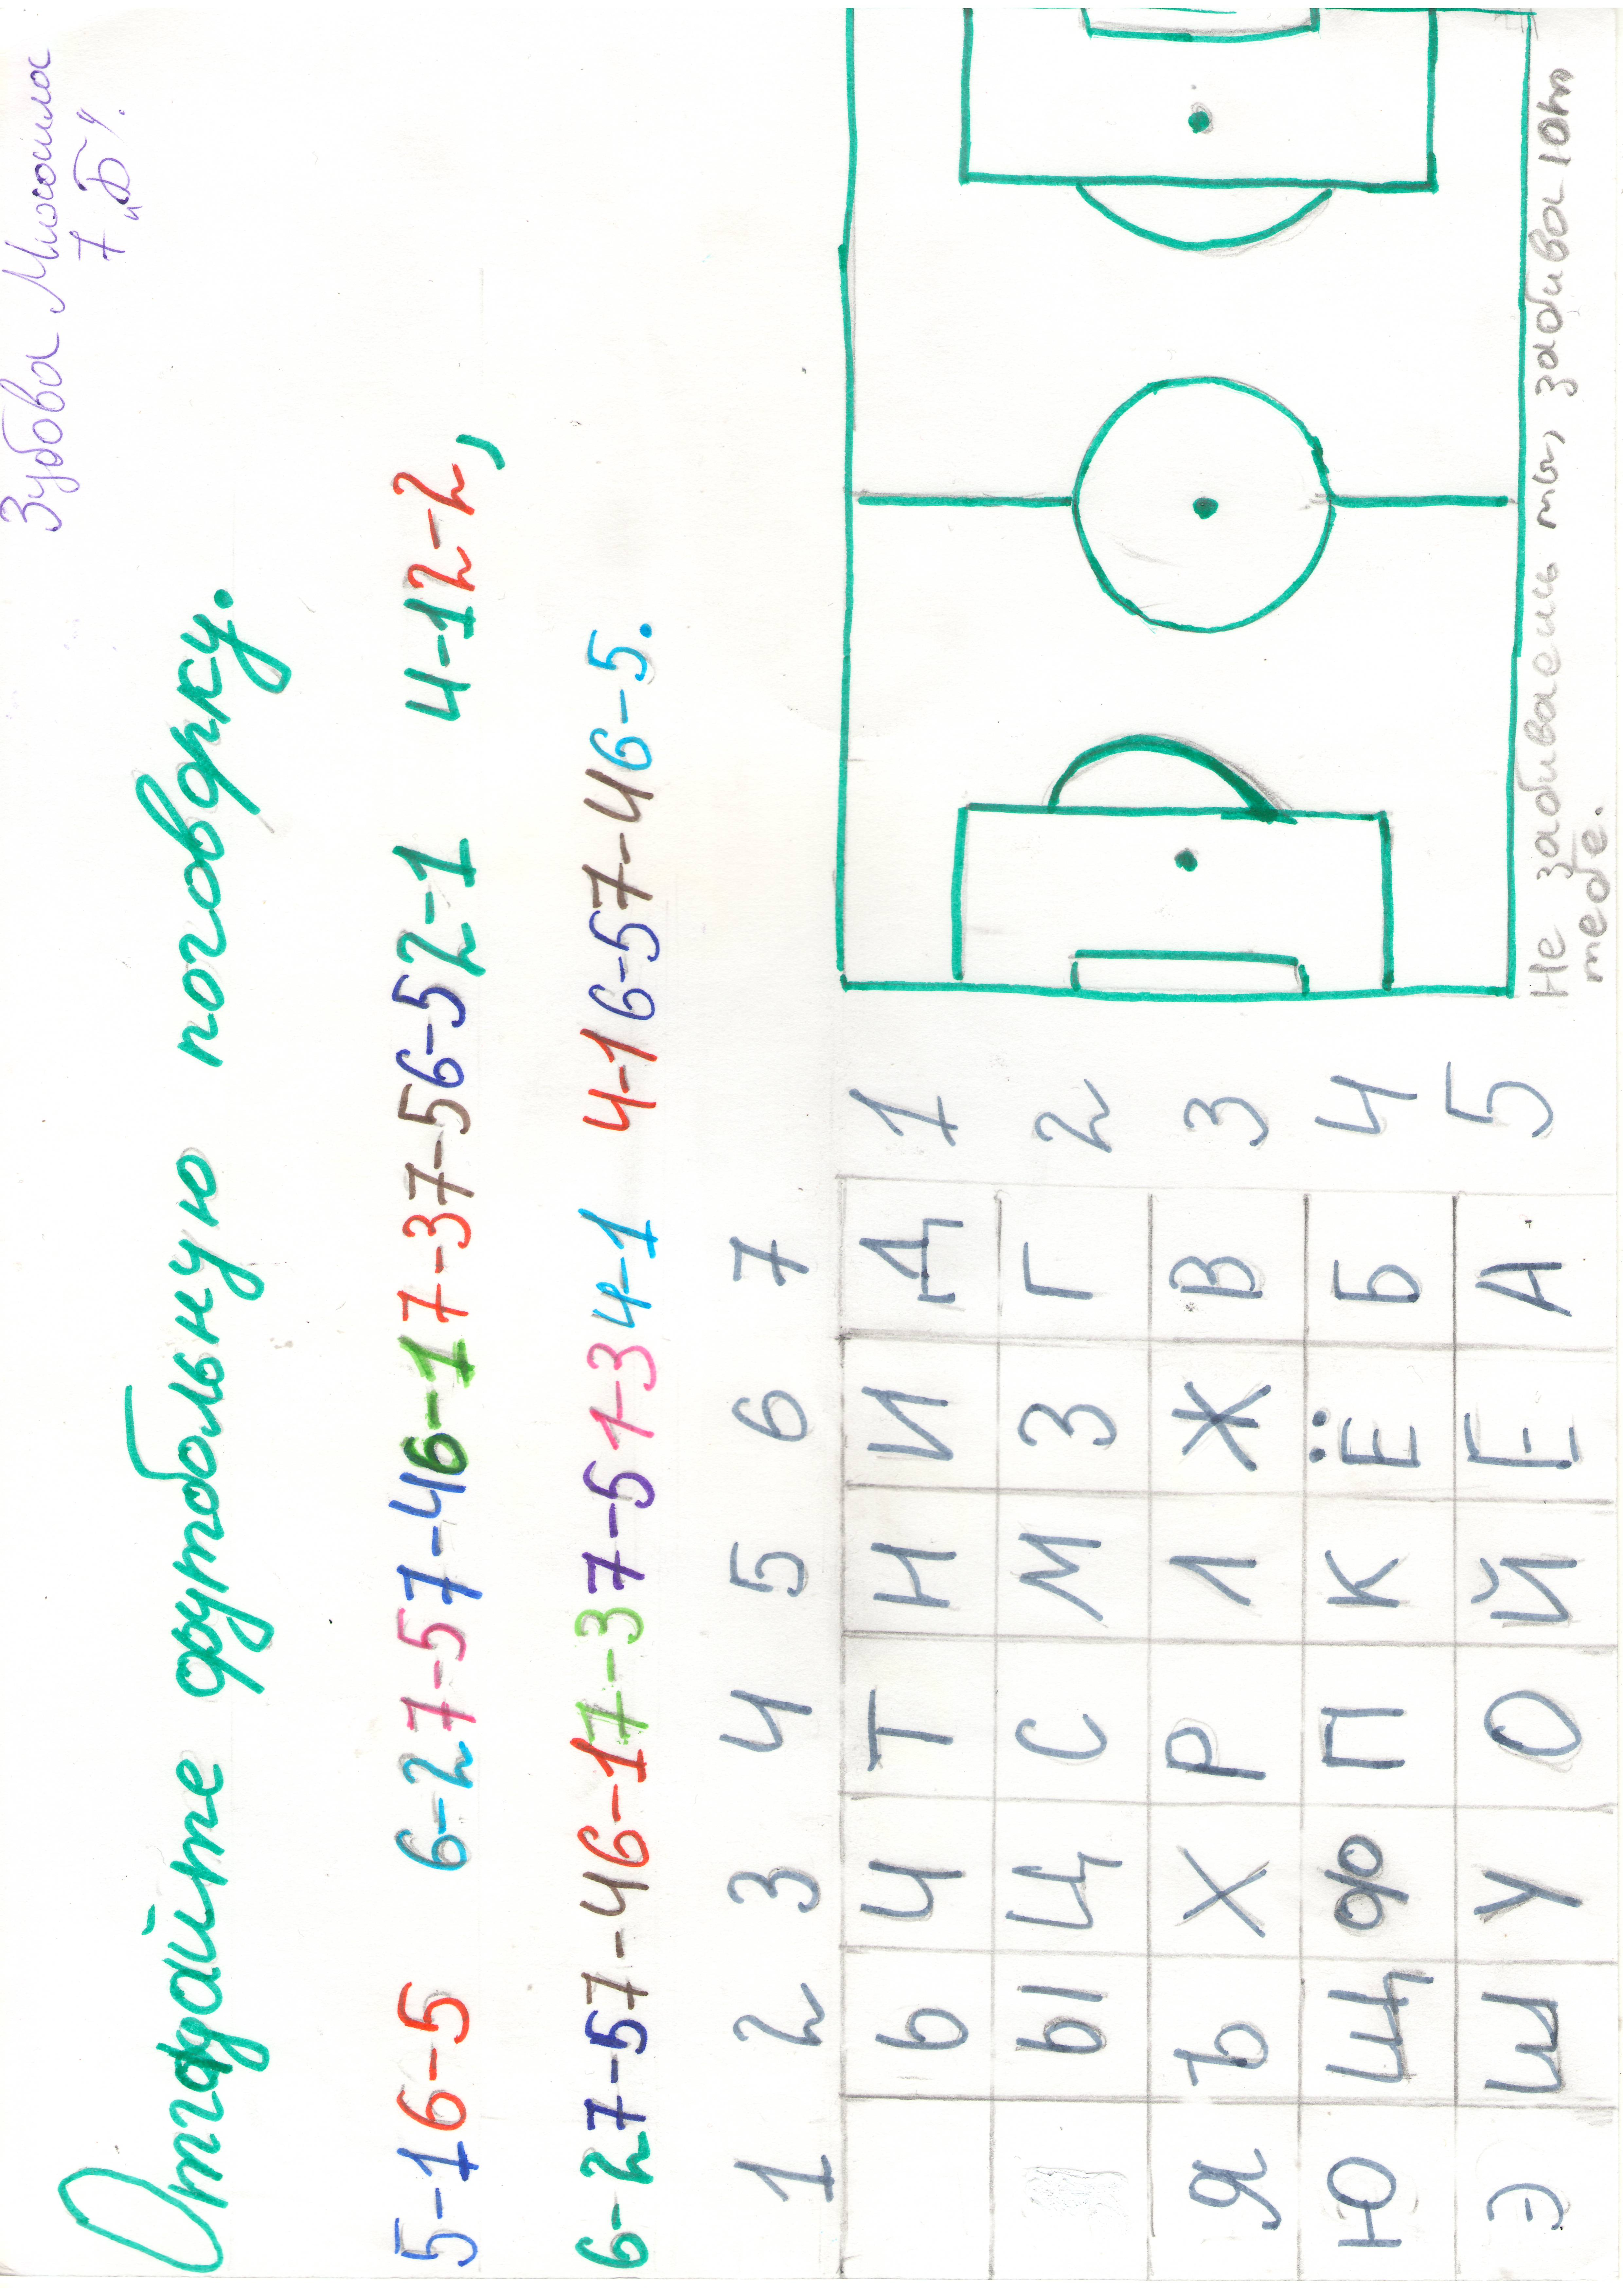 Зубова
7 „Б“.
Отгадайте футбольную поговорку.
5-1 6-5 6-2 7-5 7-4 6-1 7-3 7-5 6-5 2-1 4-1 2-2,
6-2 7-5 7-4 6-1 7-3 7-5 1-3 4-1 4-1 6-5 7-4 6-5.
1 2 3 4 5 6 7
Ь Ч Т Н И Д 1
Ы Ц С М З Г 2
Я Ъ Х Р Л Ж В 3
Ю Щ Ф П К Ё Б 4
Э Ш У О Й Е А 5
Не забиваешь ты, забивают
тебе.